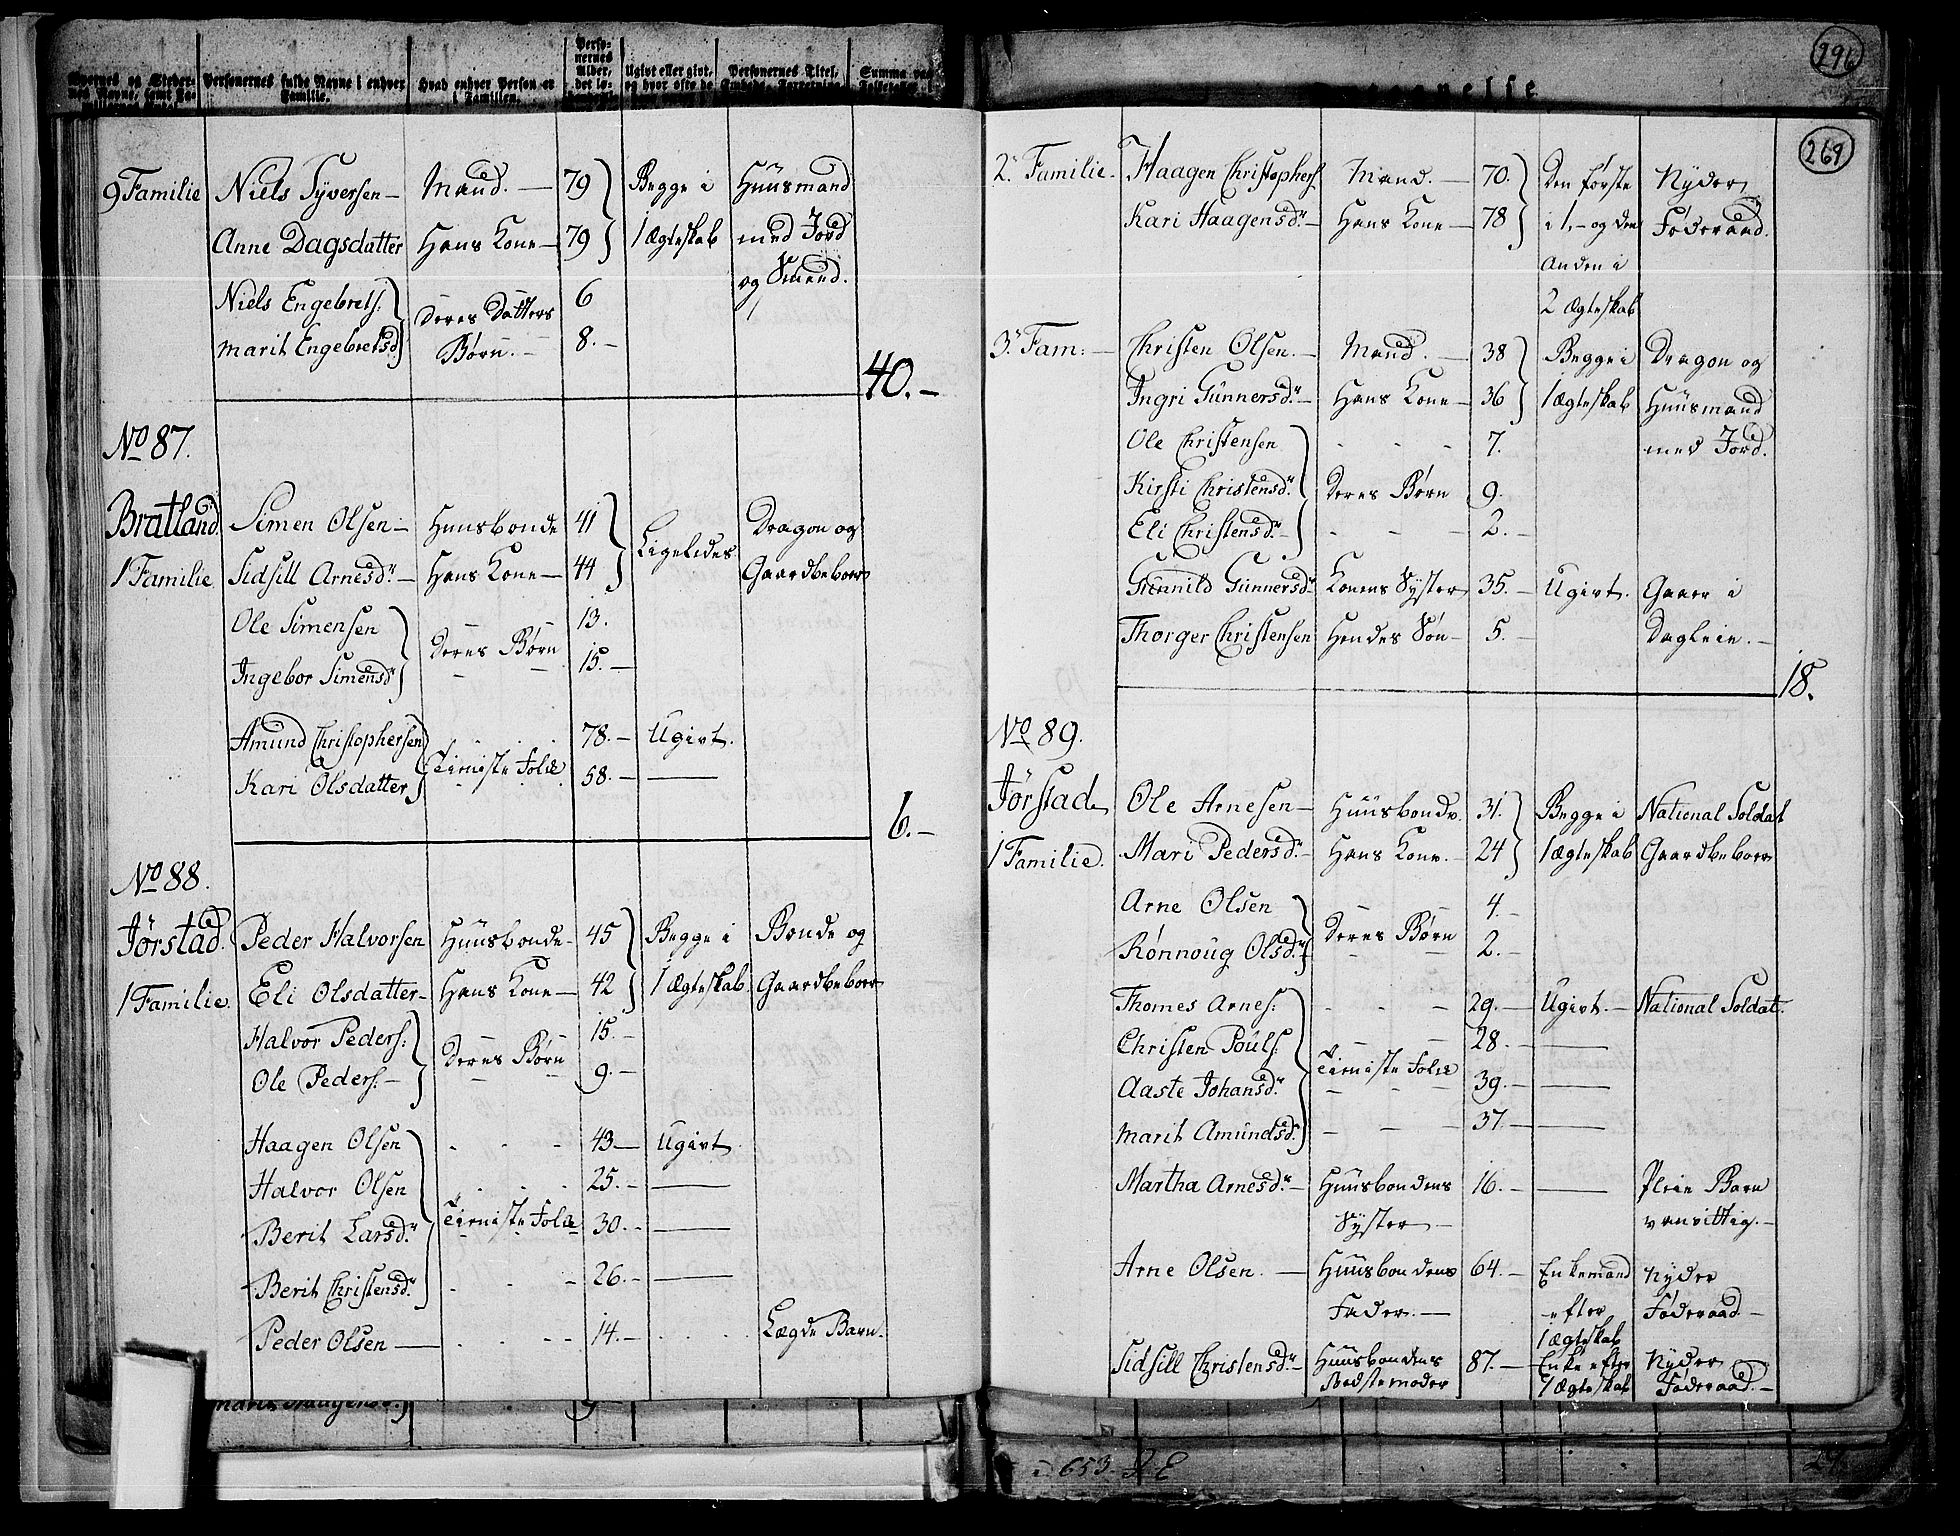 Personernes fulde Navne i enhver Familie.
Hvad enhver Person er i Familien.
Personernes Alder,
Ugivt eller givt, og hvor ofte de
Personernes Titel,
Summa paa
9 Familie Niels Syversen – Mand. – 79 Begge i Huusmand
Anne Dagsdatter Hans Kone – 79 1 Ægteskab med Jord
og Smeed.
Niels Engebrets: Deres Datters 6
Marit Engebretsd. Børn. – 8. –
40. –
No 87.
Bratland Simen Olsen – Huusbonde 41 Ligeledes Dragon og
1 Familie Sidsill Arnesd. – Hans Kone – 44 Gaardbeboer
Ole Simensen Deres Børn 13.
Ingebor Simensd. 15. –
Amund Christophersen Tieniste Folk 78. – Ugivt.
Kari Olsdatter 58. – ——
6. –
No 88.
Jørstad Peder Halvorsen Huusbonde – 45 Begge i Bonde og
1 Familie. Eli Olsdatter – Hans Kone – 42 1 Ægteskab Gaardbeboer
Halvor Peders: Deres Børn 15. –
Ole Peders: – 9. –
Haagen Olsen - - - 43 – Ugivt
Halvor Olsen - - - 25. – ——
Berit Larsd. Tieniste Folk 30. – ——
Berit Christensd. - - - 26. – ——
Peder Olsen —— - - - 14. – - - - Lægde Barn.
296
269
2. Familie – Haagen Christophers. Mand. – 70. Den første Nyder
Kari Haagensd. – Hans Kone – 78 i 1, – og den Føderaad.
Anden i
2 Ægteskab
3. Fam: – Christen Olsen. – Mand. – 38 Begge i Dragon og
Ingri Gunnersd. – Hans Kone – 36 1 Ægteskab Huusmand
Ole Christensen - - - 7. med Jord.
Kirsti Christensd. Deres Børn 9.
Eli Christensd. – - - - 2. –
Gunnild Gunnersd. Konens Syster 35. – Ugivt. Gaaer i
Thorger Christensen Hendes Søn – 5. – Dagleie. –
18.
No 89.
Jørstad Ole Arnesen – Huusbonde. 31. Begge i National Soldat
1 Familie. Mari Pedersd. – Hans Kone. – 24 1 Ægteskab Gaardbeboer
Arne Olsen Deres Børn 4. –
Rønnoug Olsd. 2. –
Thomes Arnes: - - - 29. – Ugivt. – National Soldat.
Christen Pouls: 28. – ——
Aaste Johansd. Tieniste Folk 39. – ——
Marit Amundsd. - - - 37. – ——
Martha Arnesd. – Huusbondens 16. – —— Pleie Barn
Syster – vanvittig. –
Arne Olsen. – Huusbondens 64. – Enkemand Nyder
Fader. – efter Føderaad –
1 Ægteskab
Sidsill Christensd. – Huusbondens 87. – Enke efter Nyder
Bedstemoder 1 Ægteskab Føderaad. –
653